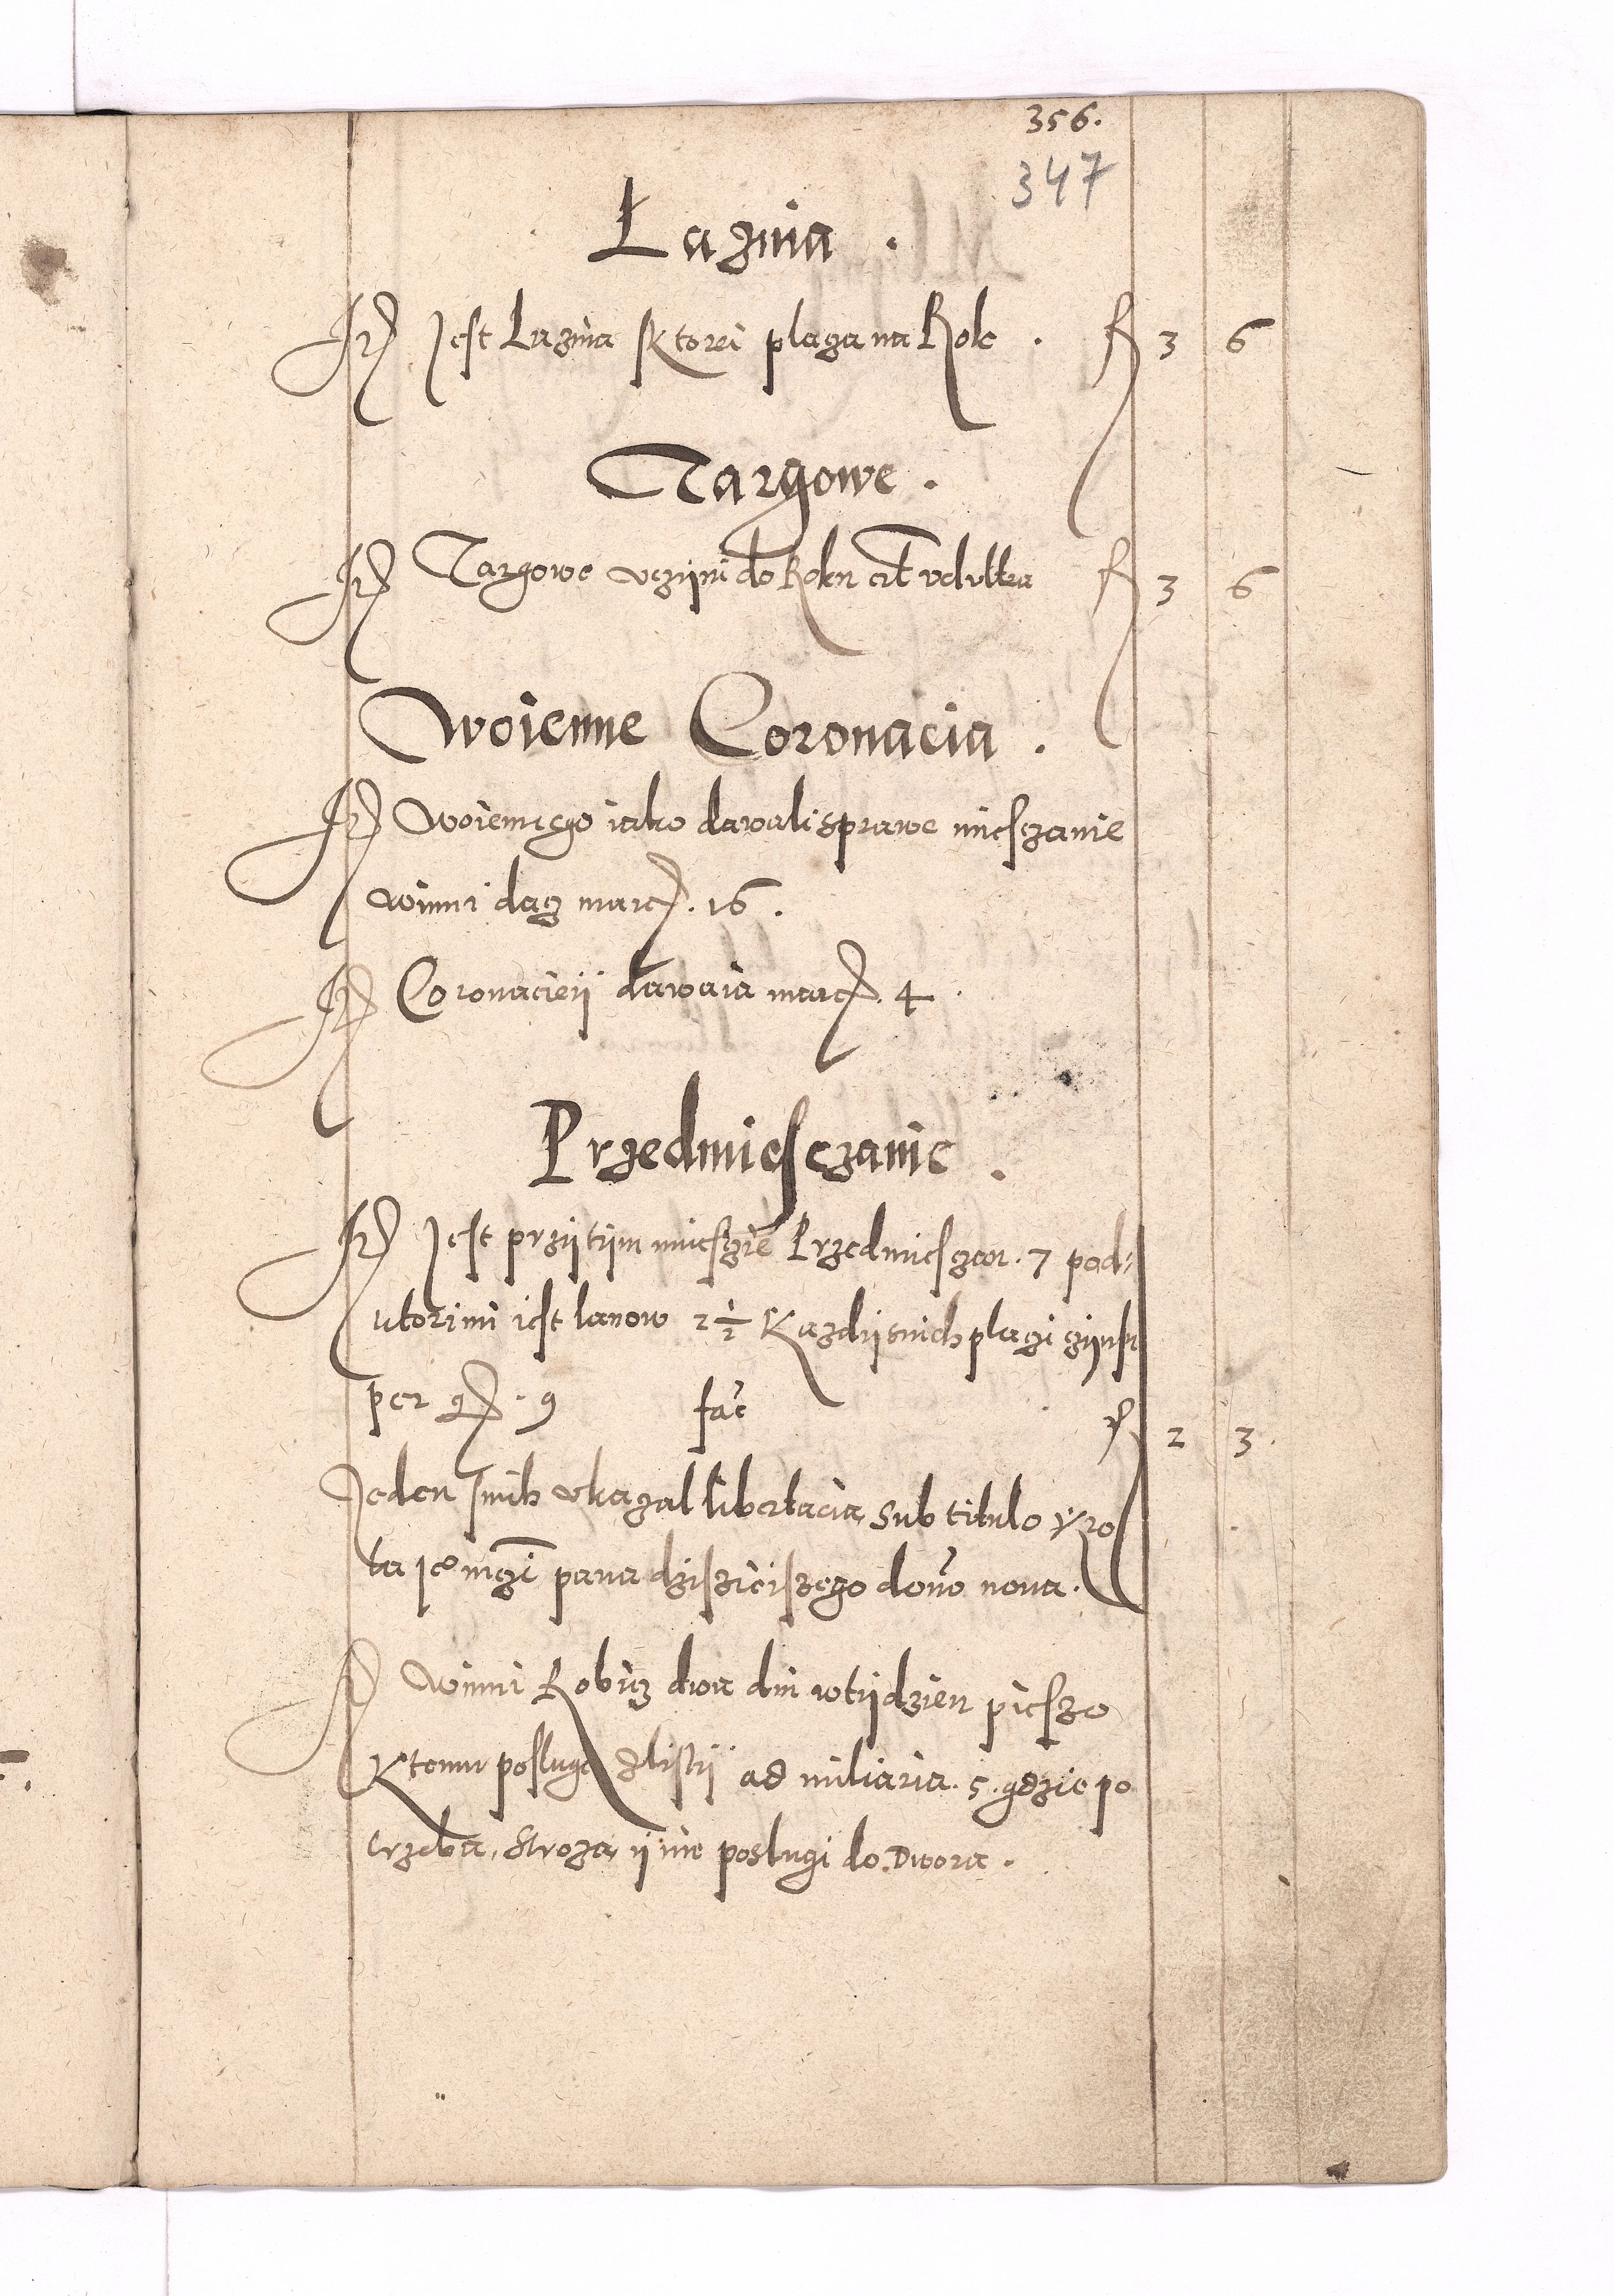 356.
347
Łaznia .
It Jest Laznia sktorei plaga na Rok . fl 3 6
Targowe .
It Targowe vczijni do Roku fl 3 6
Woienne Coronacia .
It Woiennego iako dawali sprawe miesczanie
winni dag marc. 16 .
It Coronacieij dawaia marc. 4 .
Przedmiesczanie .
It Jest przij tijm miesczie Przedmiesczan . 7 pod=
ktorimi iest lanow 2 ½ Kazdij snich plagi czijnsu
per g . 9 fac fl 2 3 .
Jeden snich vkazal libertacia, sub titulo
pana dono nova .
It winni Robicz dwa dni wtijdzien pieszo
Ktemu posluge zlistij ad miliaria . 5 . gdzie po
trzeba, Stroza, ij ine poslugi do Dwora .